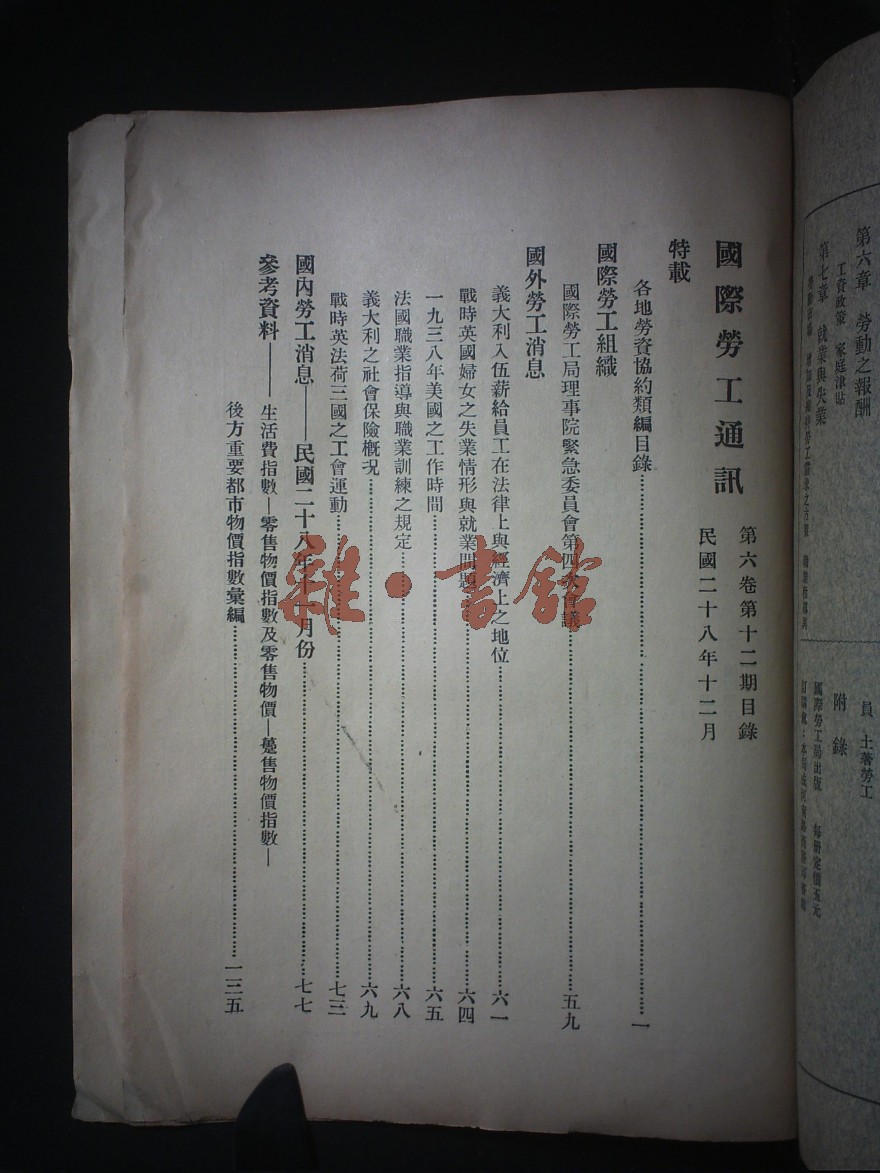 第六章　勞動之報酬
工資政策　家庭津貼
第七章　就業與失業
員　土著勞工
附錄
國際勞工局出版　每冊定價五元
國際勞工通訊
第六卷第十二期目錄
民國二十八年十二月
特載
各地勞資協約類編目錄……一
國際勞工組織
國際勞工局理事院緊急委員會第四次會議……五九
國外勞工消息
義大利入伍薪給員工在法律上與經濟上之地位……六一
戰時英國婦女之失業情形與就業問題……六四
一九三八年美國之工作時間……六五
法國職業指導與職業訓練之規定……六八
義大利之社會保險概况……六九
戰時英法荷三國之工會運動……七三
國內勞工消息——民國二十八年十一月份……七七
參考資料——生活費指數—零售物價指數及零售物價—躉售物價指數—
後方重要都市物價指數彙編……一三五
雜·書館